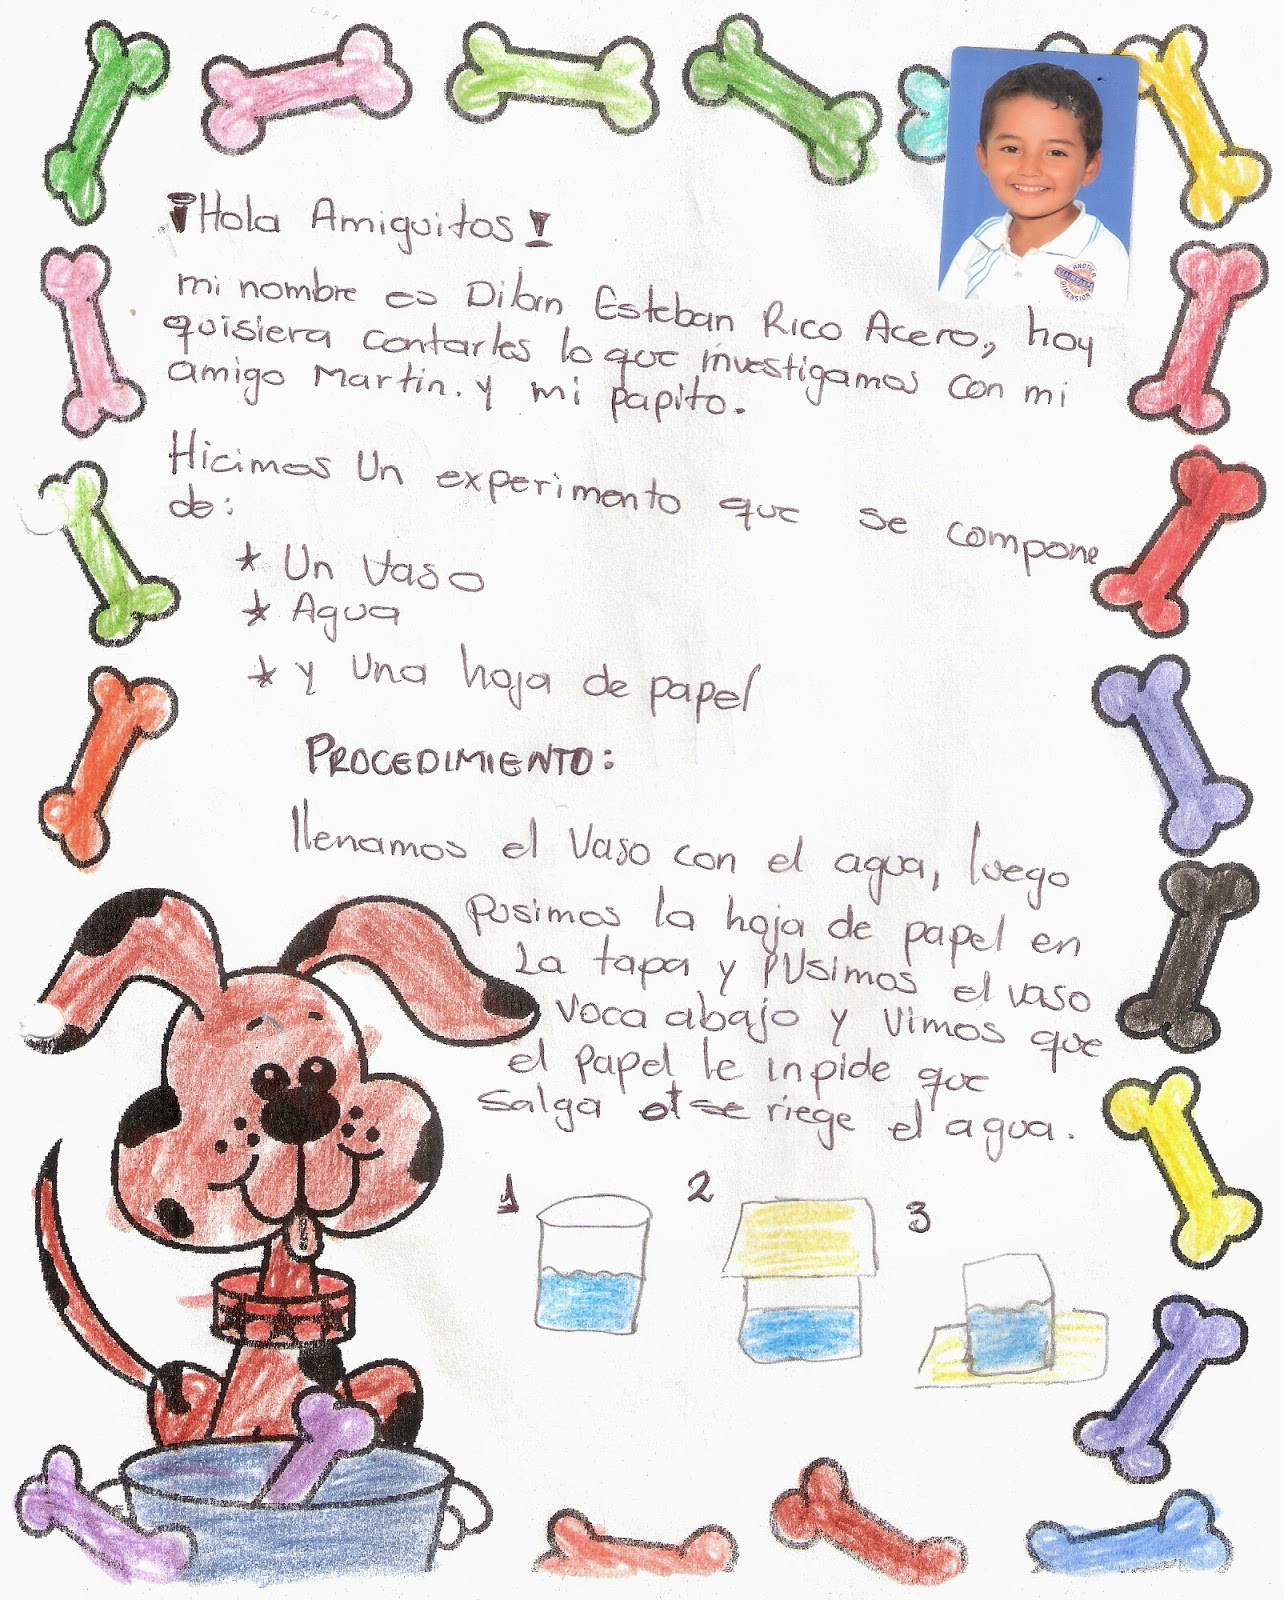 ¡Hola Amiguitos!
mi nombre es Dilan Esteban Rico Acero, hoy
quisiera contarles lo que investigamos con mi
amigo Martin. y mi papito.
Hicimos Un experimento que se compone
de:
* Un Vaso
* Agua
* y una hoja de papel
PROCEDIMIENTO:
llenamos el Vaso con el agua, luego
pusimos la hoja de papel en
La tapa y pusimos el vaso
Voca abajo y Vimos que
el papel le inpide que
Salga se riege el agua.
1 2 3
ANOTHER
DIMENSION